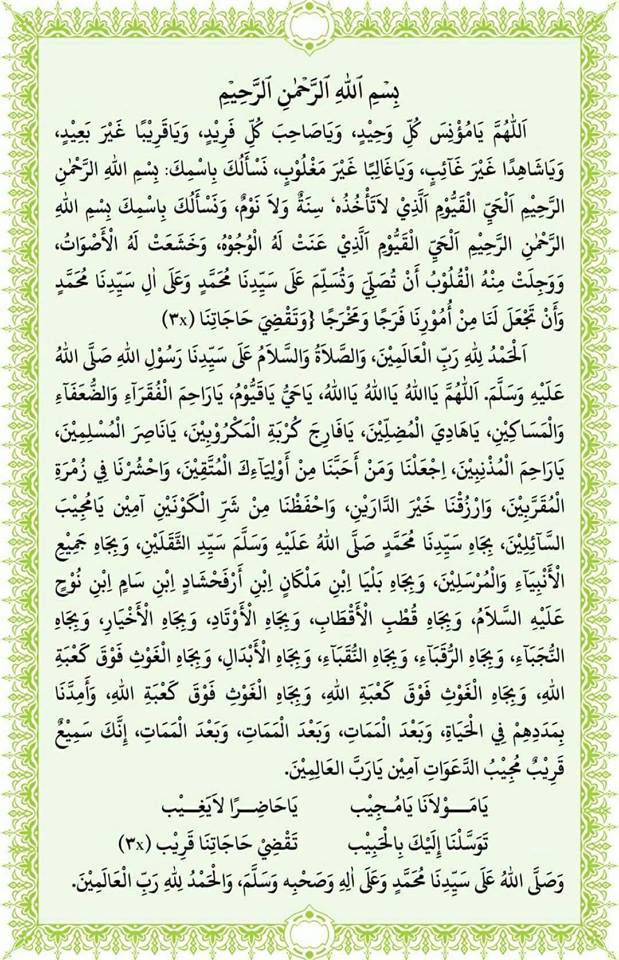 بِسْمِ اللهِ الرَّحْمٰنِ الرَّحِيْمِ
اَللّٰهُمَّ يَامُؤْنِسَ كُلِّ وَحِيْدٍ، وَيَاصَاحِبَ كُلِّ فَرِيْدٍ، وَيَاقَرِيْبًا غَيْرَ بَعِيْدٍ،
وَيَاشَاهِدًا غَيْرَ غَآئِبٍ، وَيَاغَالِبًا غَيْرَ مَغْلُوْبٍ، نَسْأَلُكَ بِاسْمِكَ: بِسْمِ اللهِ الرَّحْمٰنِ
الرَّحِيْمِ اَلْحَيِّ الْقَيُّوْمِ اَلَّذِيْ لَاتَأْخُذُهُ سِنَةٌ وَلَا نَوْمٌ، وَنَسْأَلُكَ بِاسْمِكَ بِسْمِ اللهِ
الرَّحْمٰنِ الرَّحِيْمِ اَلْحَيِّ الْقَيُّوْمِ اَلَّذِيْ عَنَتْ لَهُ الْوُجُوْهُ، وَخَشَعَتْ لَهُ الْأَصْوَاتُ،
وَوَجِلَتْ مِنْهُ الْقُلُوْبُ أَنْ تُصَلِّيَ وَتُسَلِّمَ عَلَى سَيِّدِنَا مُحَمَّدٍ وَعَلَى اٰلِ سَيِّدِنَا مُحَمَّدٍ
وَأَنْ تَجْعَلَ لَنَا مِنْ أُمُوْرِنَا فَرَجًا وَمَخْرَجًا {وَتَقْضِيَ حَاجَاتِنَا (٣x)
اَلْحَمْدُ لِلهِ رَبِّ الْعَالَمِيْنَ، وَالصَّلَاةُ وَالسَّلَامُ عَلَى سَيِّدِنَا رَسُوْلِ اللهِ صَلَّى اللهُ
عَلَيْهِ وَسَلَّمَ. اَللّٰهُمَّ يَااَللهُ يَااَللهُ يَااَللهُ، يَاحَيُّ يَاقَيُّوْمُ، يَارَاحِمَ الْفُقَرَآءِ وَالضُّعَفَآءِ
وَالْمَسَاكِيْنِ، يَاهَادِيَ الْمُضِلِّيْنَ، يَافَارِجَ كُرْبَةِ الْمَكْرُوْبِيْنَ، يَانَاصِرَ الْمُسْلِمِيْنَ،
يَارَاحِمَ الْمُذْنِبِيْنَ، اِجْعَلْنَا وَمَنْ أَحَبَّنَا مِنْ أَوْلِيَآءِكَ الْمُتَّقِيْنَ، وَاحْشُرْنَا فِيْ زُمْرَةِ
الْمُقَرَّبِيْنَ، وَارْزُقْنَا خَيْرَ الدَّارَيْنِ، وَاحْفَظْنَا مِنْ شَرِّ الْكَوْنَيْنِ آمِيْن يَامُجِيْبَ
السَّآئِلِيْنَ، بِجَاهِ سَيِّدِنَا مُحَمَّدٍ صَلَّى اللهُ عَلَيْهِ وَسَلَّمَ سَيِّدِ الثَّقَلَيْنِ، وَبِجَاهِ جَمِيْعِ
الْأَنْبِيَآءِ وَالْمُرْسَلِيْنَ، وَبِجَاهِ بَلْيَا اِبْنِ مَلْكَانِ اِبْنِ أَرْفَحْشَادِ اِبْنِ سَامِ اِبْنِ نُوْحٍ
عَلَيْهِ السَّلَامُ، وَبِجَاهِ قُطْبِ الْأَقْطَابِ، وَبِجَاهِ الْأَوْتَادِ، وَبِجَاهِ الْأَخْيَارِ، وَبِجَاهِ
النُّجَبَآءِ، وَبِجَاهِ الرُّقَبَآءِ، وَبِجَاهِ النُّقَبَآءِ، وَبِجَاهِ الْأَبْدَالِ، وَبِجَاهِ الْغَوْثِ فَوْقَ كَعْبَةِ
اللهِ، وَبِجَاهِ الْغَوْثِ فَوْقَ كَعْبَةِ اللهِ، وَبِجَاهِ الْغَوْثِ فَوْقَ كَعْبَةِ اللهِ، وَأَمِدَّنَا
بِمَدَدِهِمْ فِي الْحَيَاةِ، وَبَعْدَ الْمَمَاتِ، وَبَعْدَ الْمَمَاتِ، وَبَعْدَ الْمَمَاتِ، إِنَّكَ سَمِيْعٌ
قَرِيْبٌ مُجِيْبُ الدَّعَوَاتِ آمِيْن يَارَبَّ الْعَالَمِيْنَ.
يَامَـــوْلَانَا يَامُـجِيْب يَاحَاضِـــرًا لَايَغِيْـــب
تَوَسَّلْنَا إِلَيْكَ بِالْحَبِيْب تَقْضِيْ حَاجَاتِنَا قَرِيْب (٣x)
وَصَلَّى اللهُ عَلَى سَيِّدِنَا مُحَمَّدٍ وَعَلَى اٰلِهِ وَصَحْبِهِ وَسَلَّمَ، وَالْحَمْدُ لِلهِ رَبِّ الْعَالَمِيْنَ.